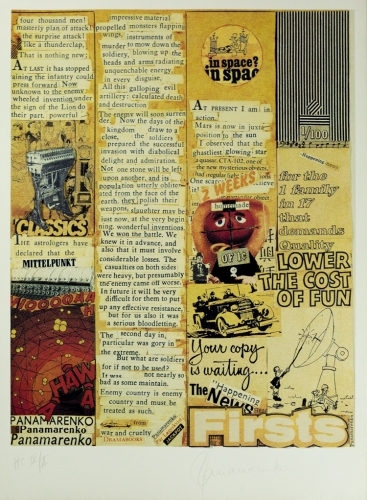 four thousand men!
masterly plan of attack
the surprise attack!
like a thunderclap,
That is nothing new;
AT LAST it has stopped
raining the infantry could
press forward! Now
unknown to the enemy
wheeled invention under
the sign of the Lion do
their part, powerful
CLASSICS
THE astrologers have
declared that the
MITTELPUNKT
HAW
PANAMARENKO
Panamarenko
Panamarenko
impressive material
propelled monsters flapping
wings, instruments of
murder to mow down the
soldiers, blowing up the
heads and arms radiating
unquenchable energy,
in every disguise,
All this galloping evil
artillery: calculated death
and destruction
The enemy will soon surren-
der. Now the days of the
kingdom draw to a
close, the soldiers
prepared the successful
invasion with diabolical
delight and admiration.
Not one stone will be left
upon another, and in
the population utterly oblite-
rated from the face of the
earth, they polish their
weapons,
The slaughter may be
just now, at the very begin-
ning, wonderful inventions.
We won the battle. We
knew it in advance, and
also that it must involve
considerable losses. The
casualties on both sides
were heavy, but presumably
the enemy came off worse.
In future it will be very
difficult for them to put
up any effective resistance,
but for us also it was
a serious bloodletting.
The second day, in
particular was gory in
the extreme.
But what are soldiers
for if not to be used?
It was not nearly so
bad as some maintain.
Enemy country is enemy
country and must be
treated as such,
from
war and cruelty
DRAMABOOKS
Panamarenko
in space?
in spac
AT PRESENT I am in
action.
Mars is now in juxta-
position to the sun
I observed that the
ghastlier, glowing star
a quasar, CTA-102, one of
the new mysterious objects
2 WEEKS
homemade
OF IC
Your copy
is waiting...
The "Happening
News
Firsts
1/100
Happening
for the
1 family
in 17
that
demands
Quality
LOWER
THE COST
OF FUN